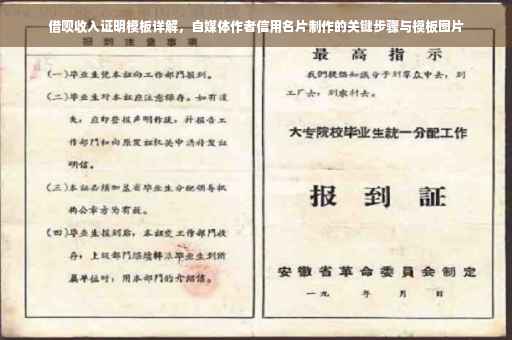 借呗收入证明模板详解，自媒体作者信用名片制作的关键步骤与模板图片
报到注意事项
(一)毕业生凭本证向工作部門报到。
(二)毕业生对本证应注意保存。如有遗
失，应即登报声明作废，并报告工
作部門和向原发证机关申请补发证
明信。
(三)本证必须加盖省毕业生分配领导机
构公章方为有效。
(四)毕业生报到后，本证交工作部門收
存；上级部門
单位时，用本部門的介绍信。
最高指示
我們提倡知识分子到羣众中去，到
工厂去，到农村去。
大专院校毕业生統一分配工作
报到証
安徽省革命委員会制定
一九 年 月 日